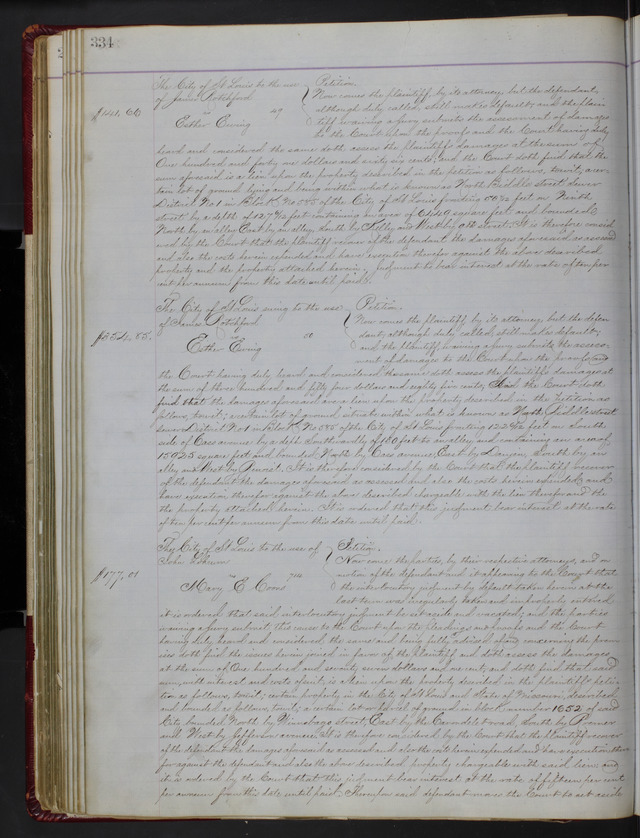 334
The City of St Louis to the use } Petition
of James
$141,66 vs Now comes the plaintiff by its attorney but the defendant
Esther Ewing 49 although duly called still makes default, and the plain
tiff waiving a jury submits the assessment of damages
to the Court upon the proofs and the Court having duly
heard and considered the same doth assess the plaintiffs damages at the sum of
One hundred and forty one dollars and sixty six cents; and the Court doth find that the
sum aforesaid is a lien upon the property described in the petition as follows, towit, a cer
tain lot of ground lying and being within what is known as North Biddle Street Sewer
District No 1 in Block No 585 of the City of St Louis fronting 50 feet on Ninth
street by a depth of 127 feet containing an area of square feet and bounded
North by an alley East by an alley, South by Kelly and West by 9th street; It is therefore consid
ered by the Court that the plaintiff recover of the defendant the damages aforesaid as assessed
and also the costs herein expended and have execution therefor against the above described
property and the property attached herein; judgment to bear interest at the rate of ten per
cent per annum from this date until paid.
The City of St Louis suing to the use } Petition.
of James
$354.85. vs Now comes the plaintiff by its attorney, but the defen
Esther Ewing 50 dant although duly called, still makes default,
and the plaintiff waiving a jury submits the assess
ment of damages to the Court upon the proofs and
the Court having duly heard and considered the same doth assess the plaintiffs damages at
the sum of three hundred and fifty four dollars and eighty five cents, And the Court doth
find that the damages aforesaid are a lien upon the property described in the Petition as
follows, towit; a certain lot of ground situate within what is known as North Biddle street
sewer District No 1 in Block No 585 of the City of St Louis fronting 122 feet on South
side of Cass avenue by a depth Southwardly of 130 feet to an alley and containing an area of
15925 square feet and bounded North by Cass avenue East by South by an
alley and West by It is therefore considered by the Court that the plaintiff recover
of the defendant the damages aforesaid as assessed and also the costs herein expended and
have execution therefor against the above described chargeable with the lien therefor and the
the property attached herein. It is ordered that this judgment bear interest at the rate
of ten per cent per annum from this date until paid.
The City of St Louis to the use of } Petition.
John
$177,01 vs Now come the parties, by their respective attorneys, and on
Mary E. Coons motion of the defendant and it appearing to the Court that
the interlocutory judgment by default taken herein at the
last term was irregularly taken and improperly entered
it is ordered that said interlocutory judgment be set aside and vacated, and the parties
waiving a jury submit this cause to the Court upon the Pleadings and proofs and the Court
having duly heard and considered the same and being fully advised of and concerning the prem
ises doth find the issues herein joined in favor of the Plaintiff and doth assess the damages
at the sum of One hundred and seventy seven dollars and one cent; and doth find that said
sum, with interest and costs of suit, is a lien upon the property described in the plaintiffs peti
tion as follows, towit; certain property in the City of St Louis and State of Missouri, described
and bounded as follows, towit; a certain lot or parcel of ground in block number 1652 of said
City bounded North by Winnebago street, East by the Carondelet road, South by
and West by Jefferson avenue. It is therefore considered by the Court that the plaintiff recover
of the defendant the damages aforesaid as assessed and also the costs herein expended and have execution there
for against the defendant and also the above described property chargeable with said lien and
it is ordered by the Court that this judgment bear interest at the rate of fifteen per cent
per annum from this date until paid. Thereupon said defendant moves the Court to set aside